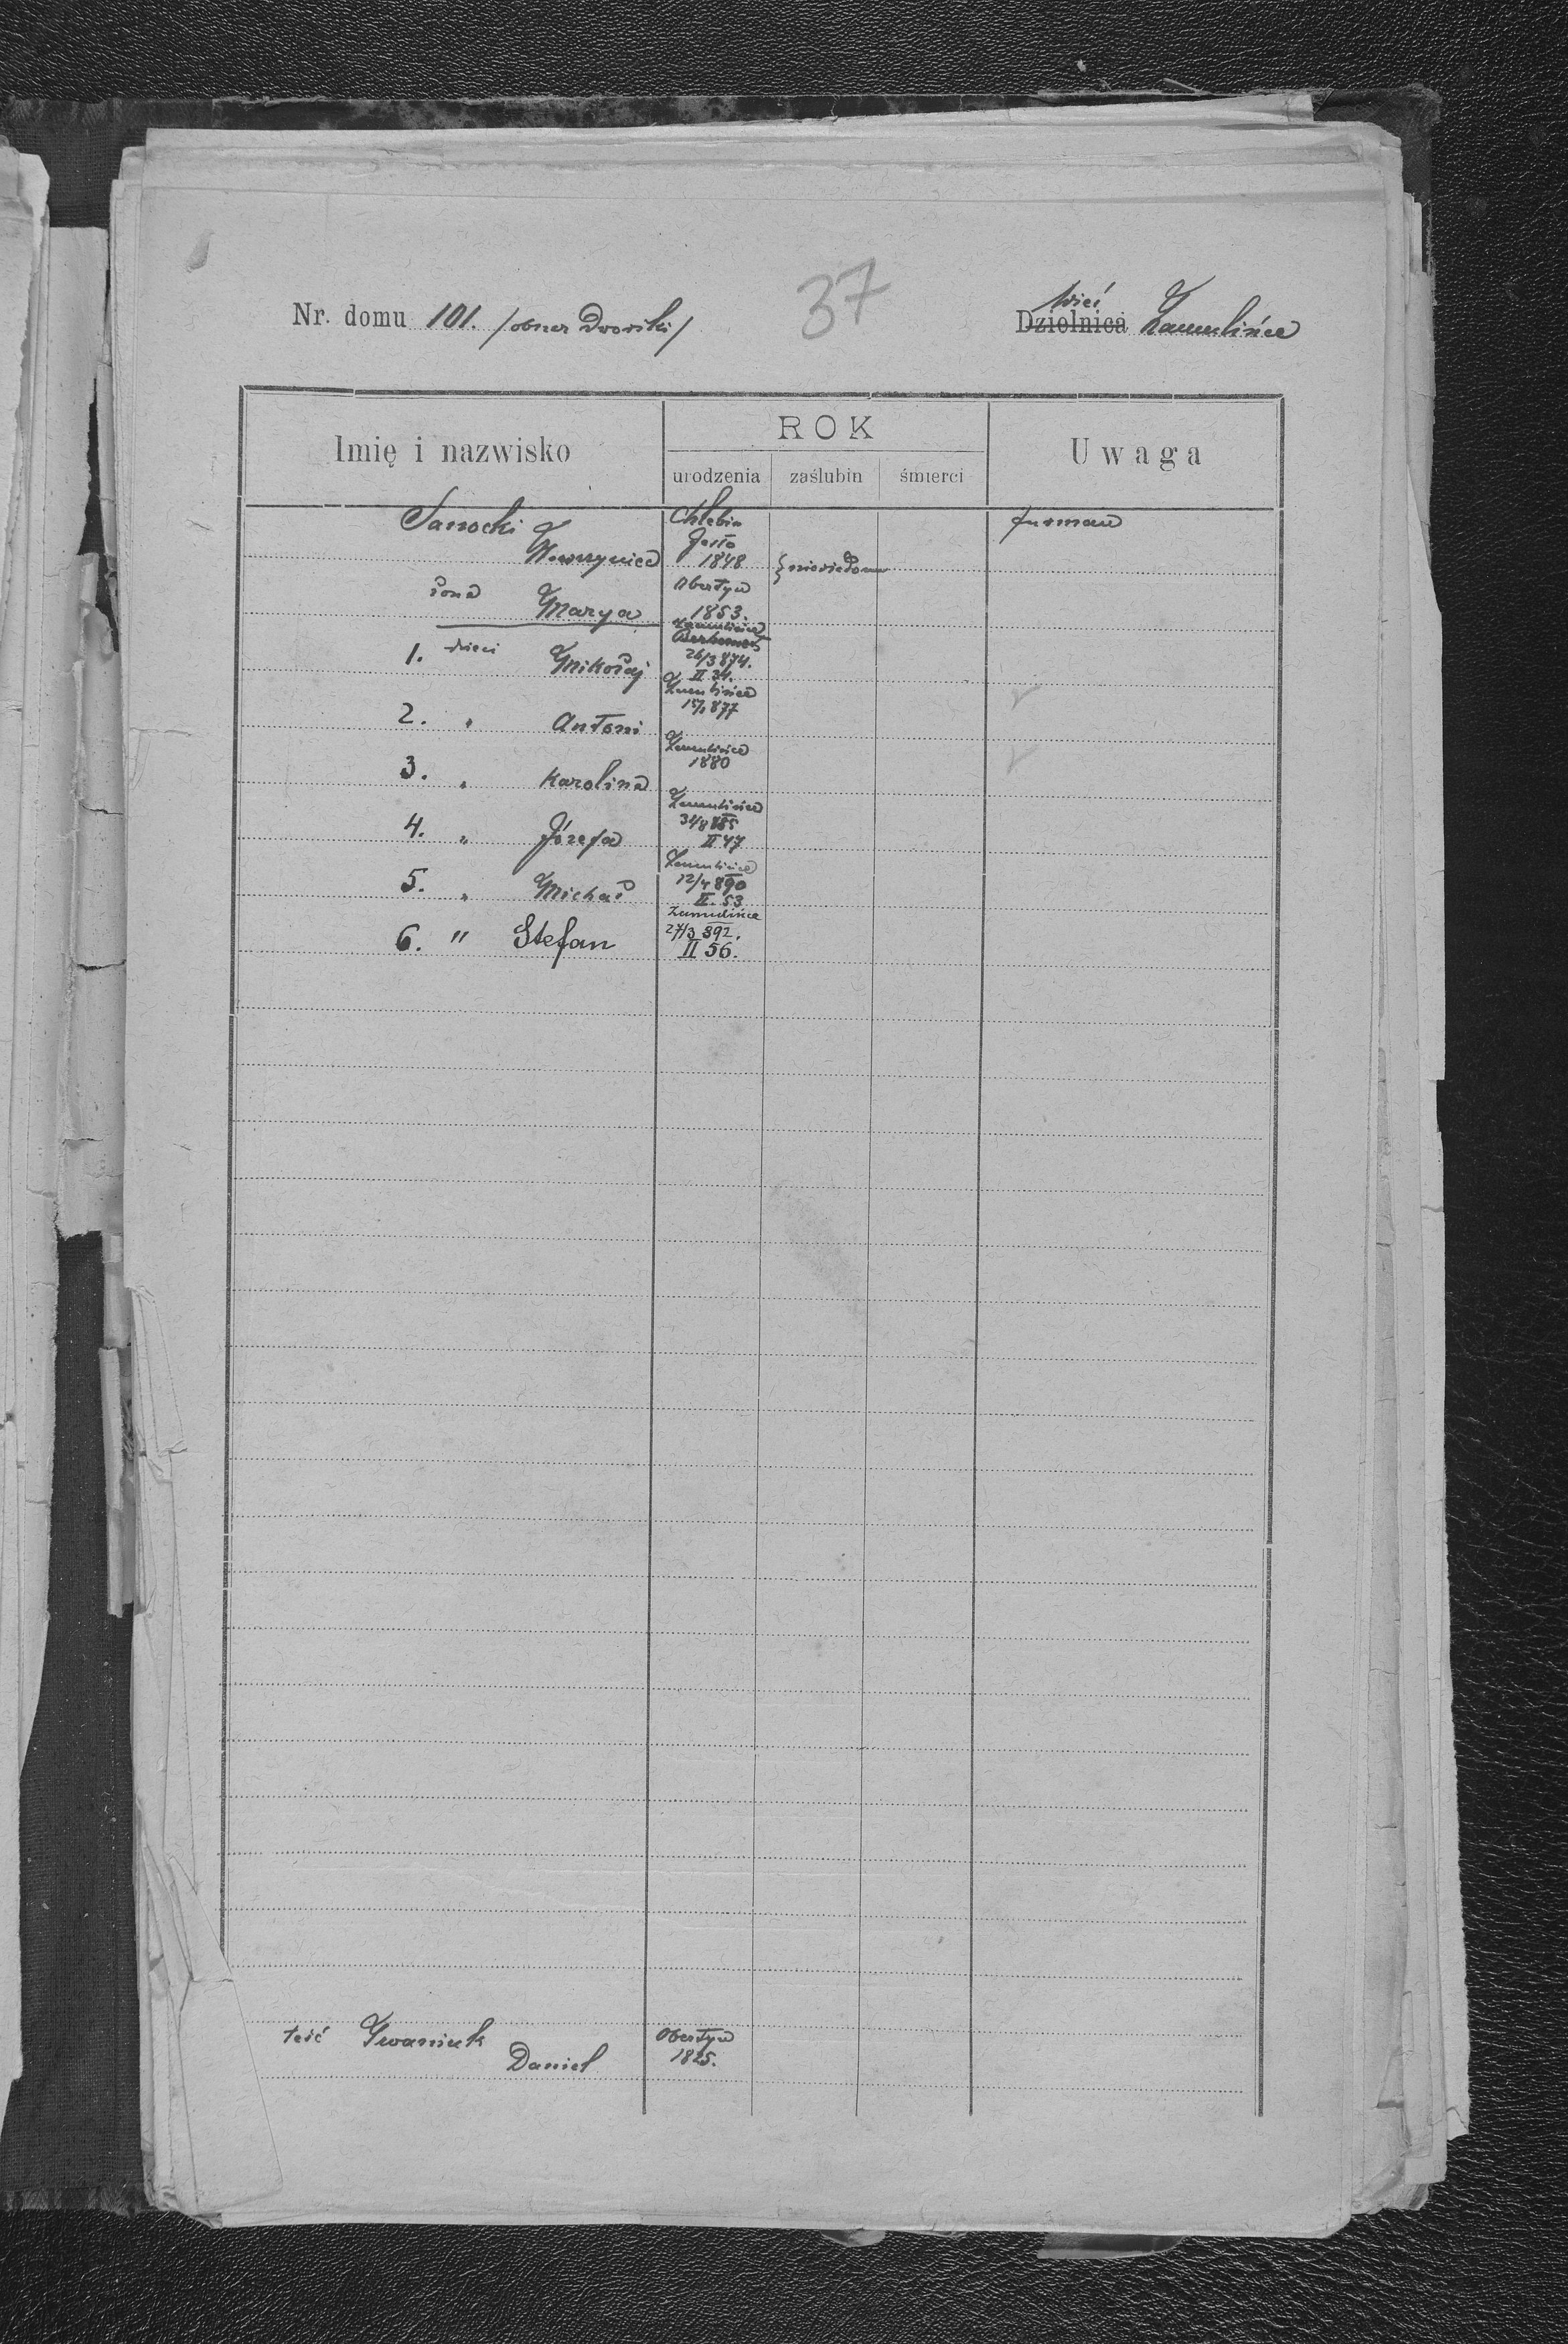 37
Nr. domu 101. /obszar Dworski/
wieś
Dzielnica Zamulińce
Imię i nazwisko
ROK
urodzenia zaślubin śmierci
Uwaga
Sanocki Chlebin furman
Jasło
Wawrzyniec 1848 niewiadomo
żona Obertyn
Marya 1853.
Zamulińce
1. dzieci Mikołaj 26/3 874.
II 34.
Zamulińce
2. " Antoni 877
Zamulińce
3. " Karolina 1880
Zamulińce
4. " Józefa 31/8 885
II 47
Zamulińce
5. " Michał 12/4 890
II. 53
Zamulińce
6. " Stefan 27/3 892.
II 56.
teść Iwaniuk Obertyn
Daniel 1825.